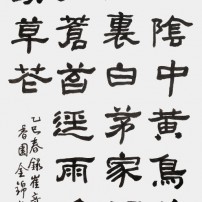 陰中黃鳥
裏白茅家
蒼苔逕雨
動草花
乙巳春錄崔
香園金錦